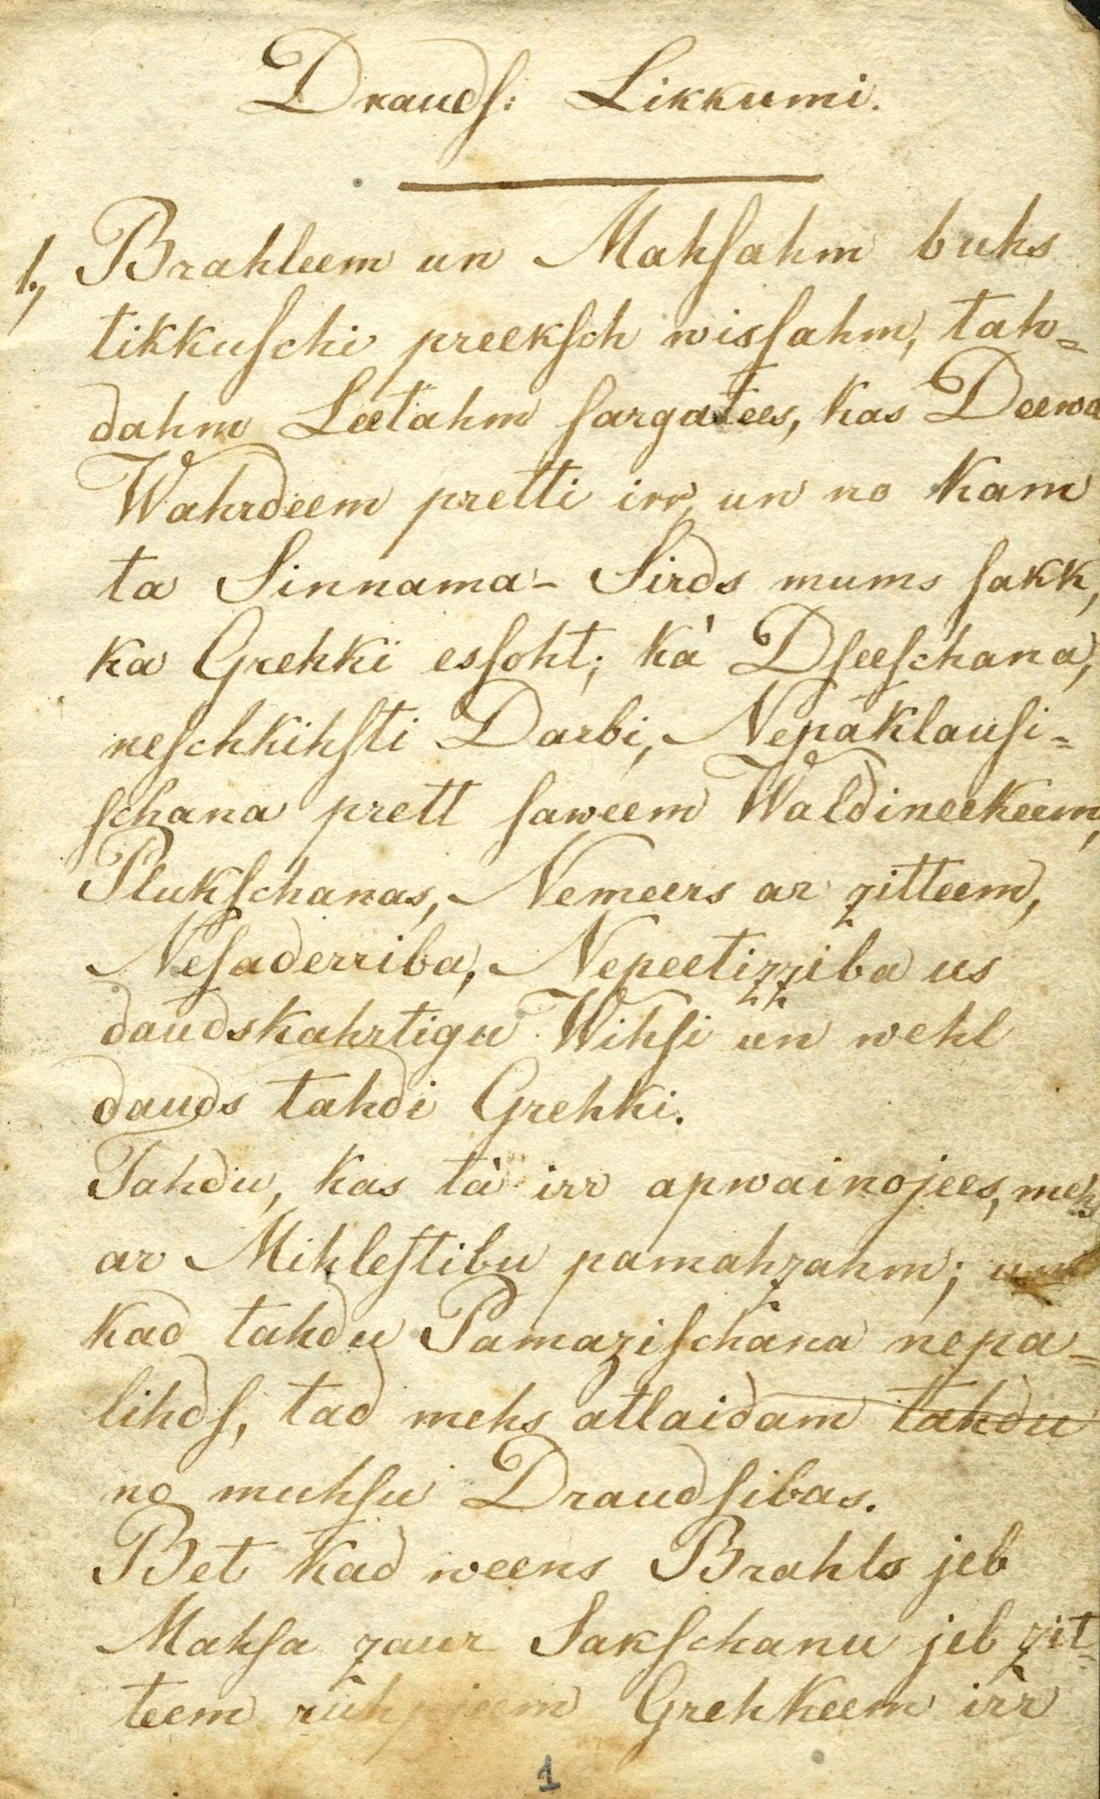 Draudſ: Likkumi.
1., Brahleem un Mahſahm buhs
tikkuſchi preekſch wisſahm, tah=
dahm Leetahm ſargatees, kas Deewa
Wahrdeem pretti irr, un no kam
ta Sinnama- Sirds mums ſakk,
ka Grehki esſoht; kà Dſeeſchana,
neſchkihſti Darbi, Nepaklauſi=
ſchana prett ſaweem Waldineekeem,
Plukſchanas, Nemeers ar zitteem,
Neſaderriba, Nepeetizziba us
daudskahrtigu Wihſi un wehl
dauds tahdi Grehki.
Tahdu, kas tà irr apwainojees, mehs
ar Mihleſtibu pamahzahm; un
kad tahdu Pamaziſchana nepa=
lihdſ, tad mehs atlaidam tahdu
no muhſu Draudſibas.
Bet kad weens Brahls jeb
Mahſa zaur Sakſchanu jeb zit=
teem Grehkeem irr
1